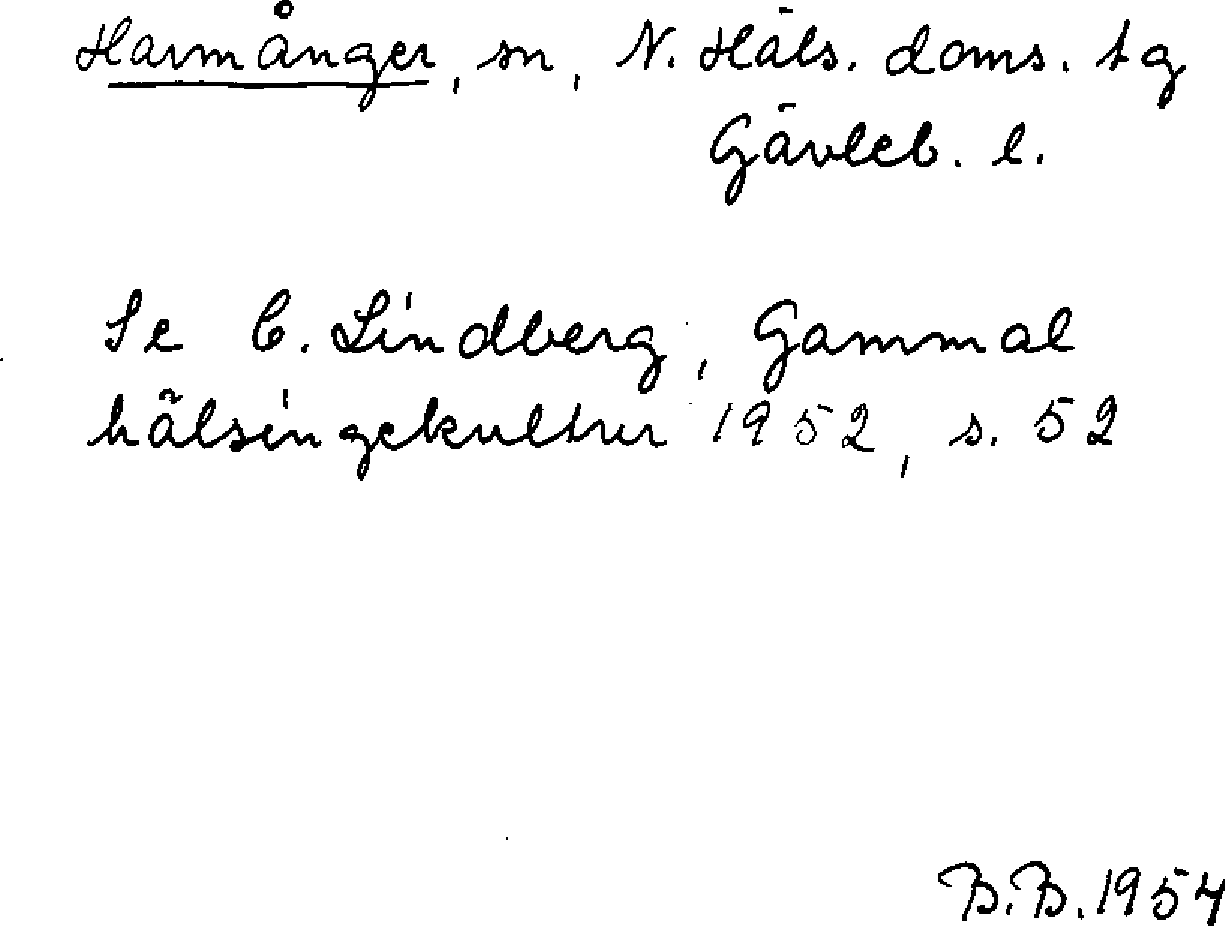 Harmånger, sn, N. Häls. doms. tg
Gävleb. l.
Se C. Lindberg, Gammal
hälsingekultur 1952, s. 52
B.B. 1954